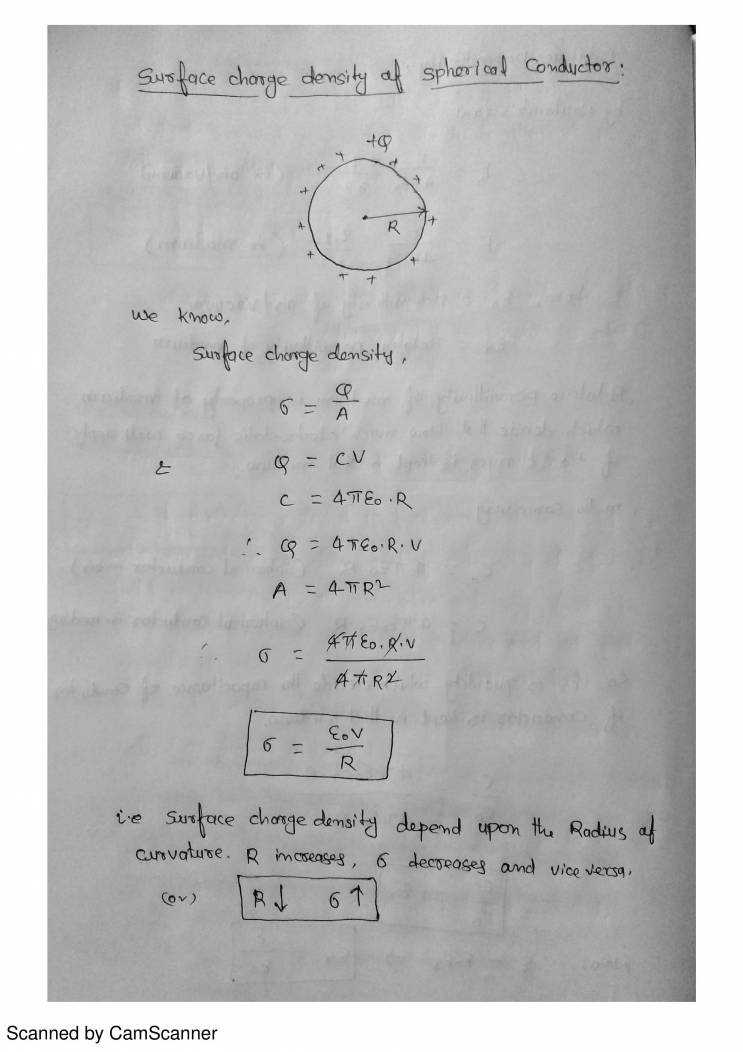 Surface charge density of spherical Conductor:
+Q
R
we know,
Surface charge density,
σ = Q/A
& Q = CV
C = 4πε₀.R
∴ Q = 4πε₀.R.V
A = 4πR²
∴ σ = 4πε₀.R.V / 4πR²
σ = ε₀V/R
i.e Surface charge density depend upon the Radius of
curvature. R increases, σ decreases and vice versa.
(or) R↓ σ↑
Scanned by CamScanner